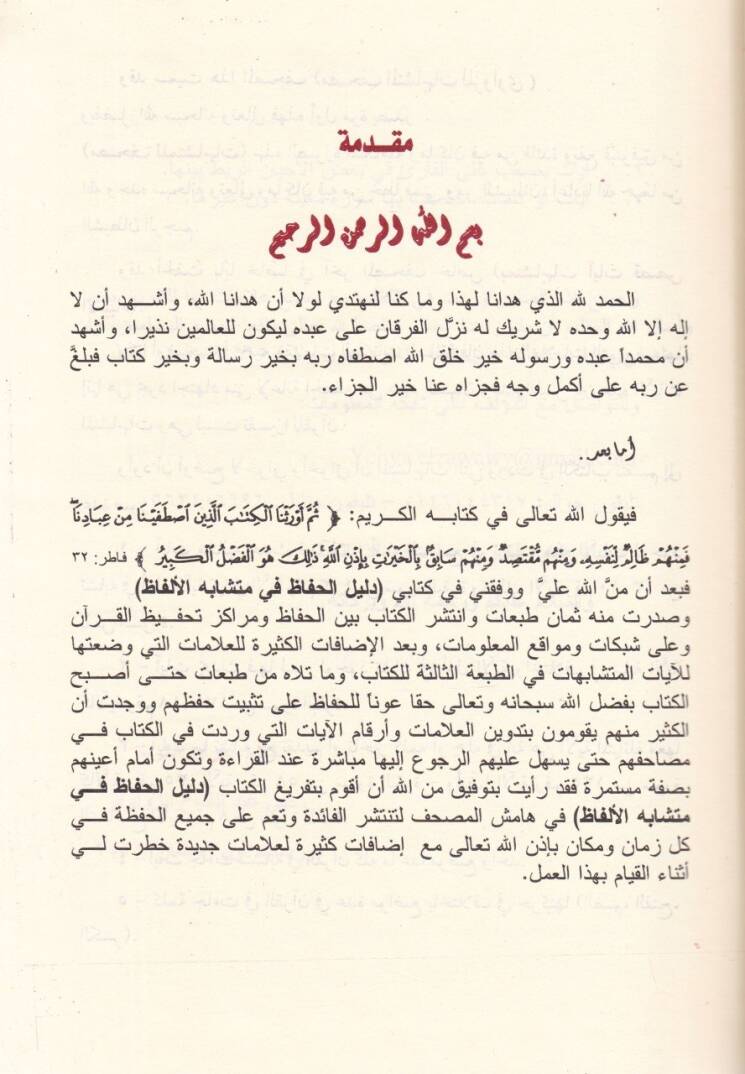 مقدمة
بسم الله الرحمن الرحيم
الحمد لله الذي هدانا لهذا وما كنا لنهتدي لولا أن هدانا الله، وأشهد أن لا
إله إلا الله وحده لا شريك له نزَّل الفرقان على عبده ليكون للعالمين نذيرا، وأشهد
أن محمداً عبده ورسوله خير خلق الله اصطفاه ربه بخير رسالة وبخير كتاب فبلغَّ
عن ربه على أكمل وجه فجزاه عنا خير الجزاء.
أما بعد.
فيقول الله تعالى في كتابه الكريم: ﴿ ثُمَّ أَوْرَثْنَا الْكِتَابَ الَّذِينَ اصْطَفَيْنَا مِنْ عِبَادِنَا
فَمِنْهُمْ ظَالِمٌ لِنَفْسِهِ وَمِنْهُمْ مُقْتَصِدٌ وَمِنْهُمْ سَابِقٌ بِالْخَيْرَاتِ بِإِذْنِ اللَّهِ ذَلِكَ هُوَ الْفَضْلُ الْكَبِيرُ ﴾ فاطر: ٣٢
فبعد أن منَّ الله عليَّ ووفقني في كتابي (دليل الحفاظ في متشابه الألفاظ)
وصدرت منه ثمان طبعات وانتشر الكتاب بين الحفاظ ومراكز تحفيظ القرآن
وعلى شبكات ومواقع المعلومات، وبعد الإضافات الكثيرة للعلامات التي وضعتها
للآيات المتشابهات في الطبعة الثالثة للكتاب، وما تلاه من طبعات حتى أصبح
الكتاب بفضل الله سبحانه وتعالى حقا عوناً للحفاظ على تثبيت حفظهم ووجدت أن
الكثير منهم يقومون بتدوين العلامات وأرقام الآيات التي وردت في الكتاب في
مصاحفهم حتى يسهل عليهم الرجوع إليها مباشرة عند القراءة وتكون أمام أعينهم
بصفة مستمرة فقد رأيت بتوفيق من الله أن أقوم بتفريغ الكتاب (دليل الحفاظ في
متشابه الألفاظ) في هامش المصحف لتنتشر الفائدة وتعم على جميع الحفظة في
كل زمان ومكان بإذن الله تعالى مع إضافات كثيرة لعلامات جديدة خطرت لي
أثناء القيام بهذا العمل.